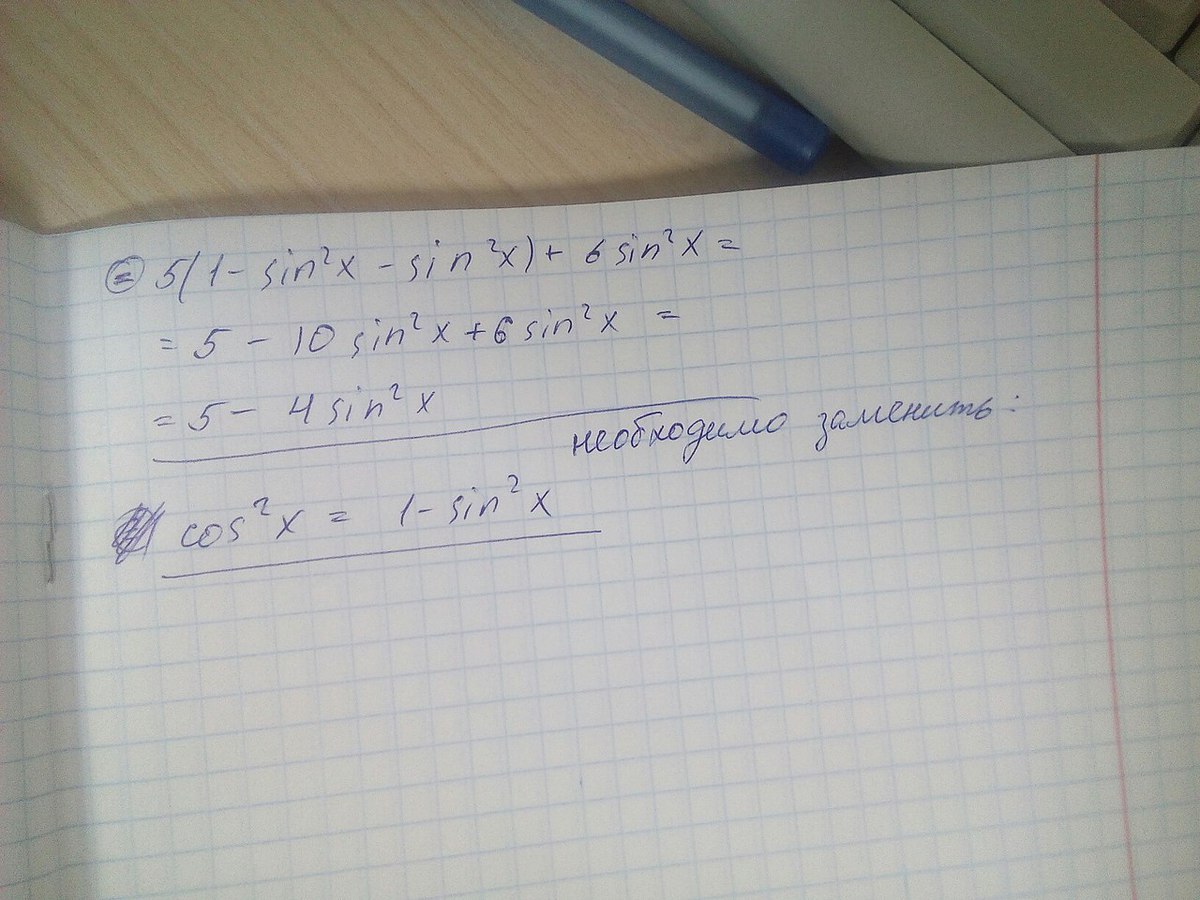 = 5(1 - sin²x - sin²x) + 6 sin²x =
= 5 - 10 sin²x + 6 sin²x =
= 5 - 4 sin²x
необходимо заменить:
cos²x = 1 - sin²x